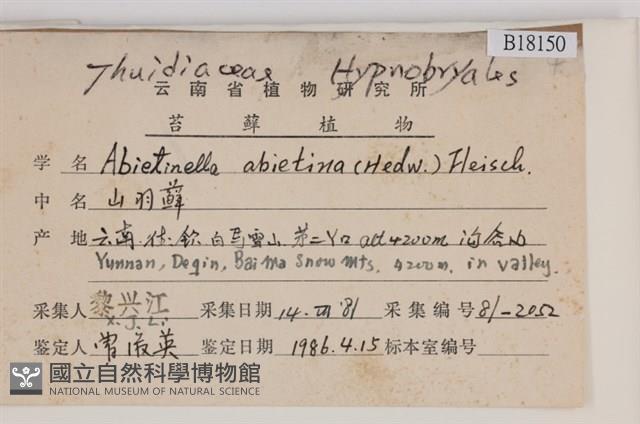 B18150
Thuidiaceae Hypnobryales
云南省植物研究所
苔藓植物
学名 Abietinella abietina (Hedw.) Fleisch.
中名 山羽藓
产地 云南 德钦 白马雪山 alt 4200m 沟谷内
Yunnan, Deqin, Baima Snow Mts. 4200m. in valley.
采集人 黎兴江 采集日期 14. '81 采集编号 81-2052
X. J. Li.
鉴定人 曾淑英 鉴定日期 1986.4.15 标本室编号
國立自然科學博物館
NATIONAL MUSEUM OF NATURAL SCIENCE